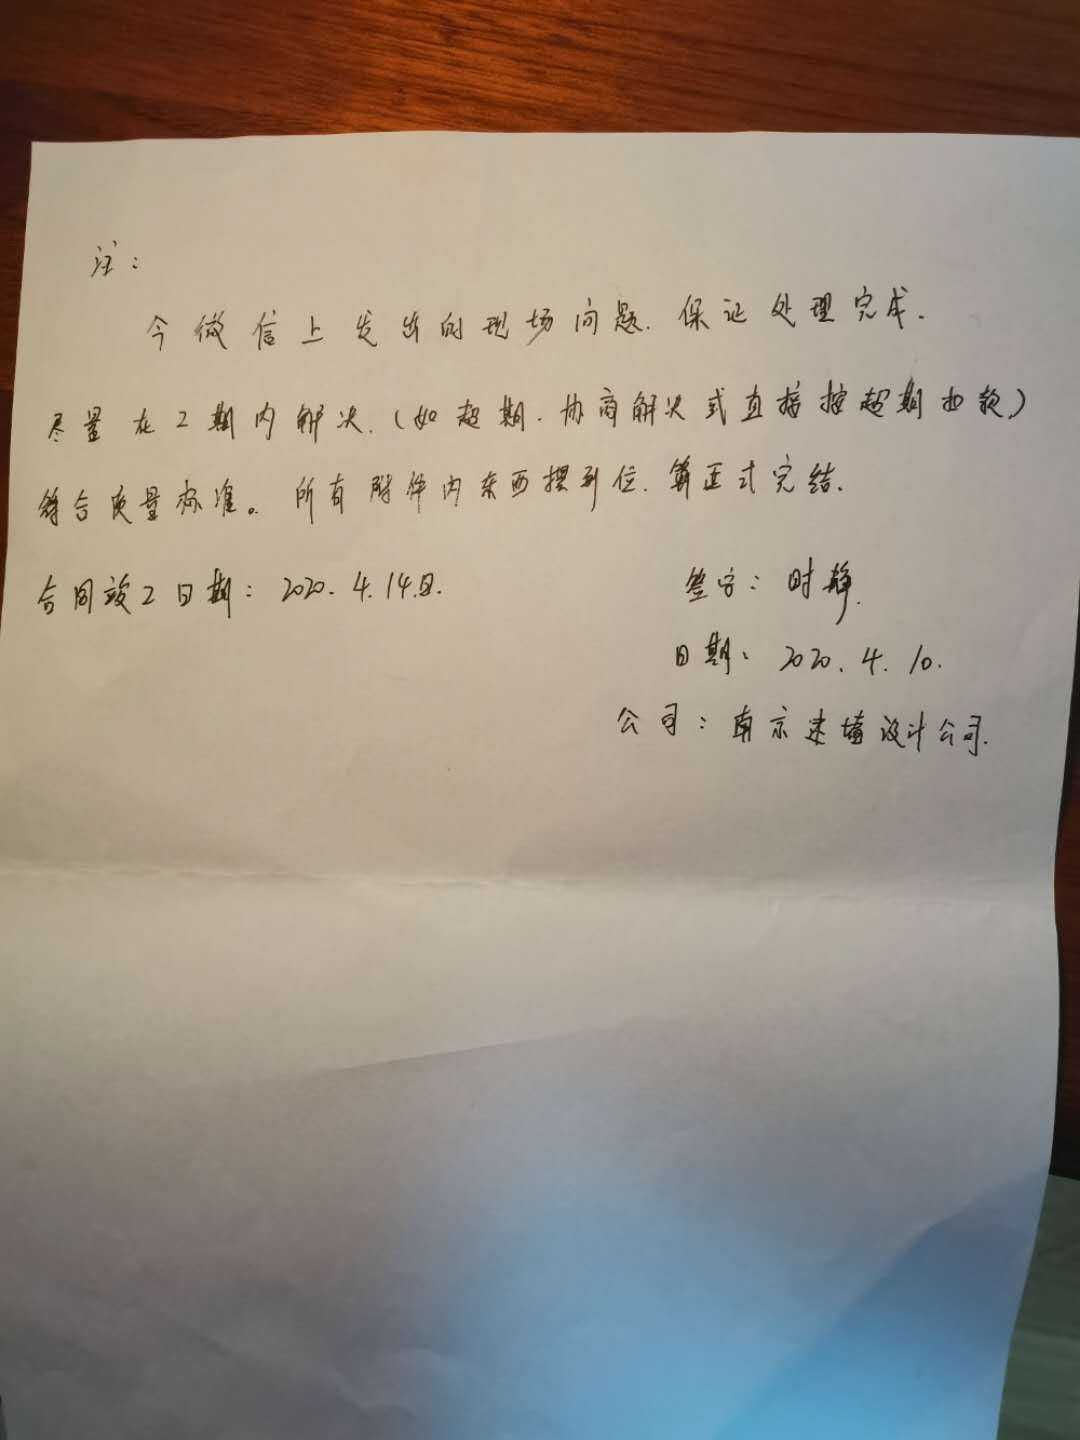 注：
今微信上发出的现场问题.保证处理完成.
尽量在工期内解决.(如超期.协商解决或直接按超期扣款)
符合质量标准。所有附件内东西摆到位.算正式完结.
合同竣工日期：2020.4.14日.
签字：时静.
日期：2020.4.10.
公司：南京 设计公司.